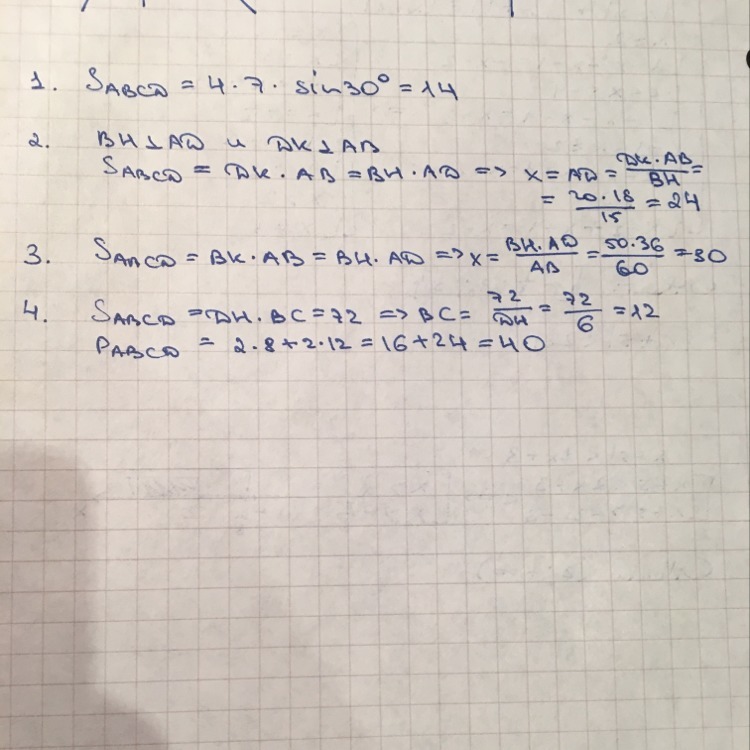 1. SABCD = 4·7· sin30° = 14
2. BH⊥AD и DK⊥AB
SABCD = DK·AB = BH·AD => x = AD = DK·AB/BH =
= 20·18/15 = 24
3. SABCD = BK·AB = BH·AD => x = BH·AD/AB = 50·36/60 = 30
4. SABCD = DH·BC = 72 => BC = 72/DH = 72/6 = 12
PABCD = 2·8+2·12 = 16+24 = 40